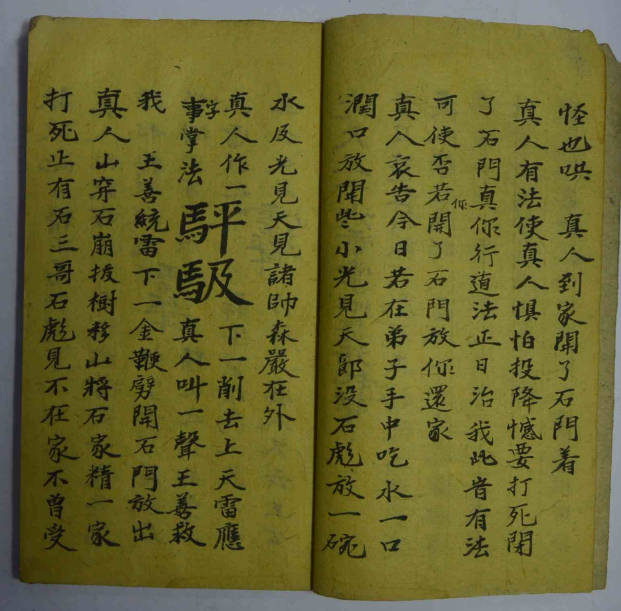 怪也哄 真人到家開了石門着
真人有法使真人惧怕投降憾要打死閉
了石門真你行道法正日治我此音有法
可使否若你開了石門放你還家
真人哀告今日若在弟子手中吃水一口
潤口放開些小光見天郎没石彪放一碗
水反光見天見諸帥森嚴在外
真人作一字 下一削去上天雷應
事掌法 真人叫一聲王善救
我 王善統雷下一金鞭劈開石門放出
真人山穿石崩拔樹移山將石家精一家
打死止有石三哥石彪見不在家不曾受